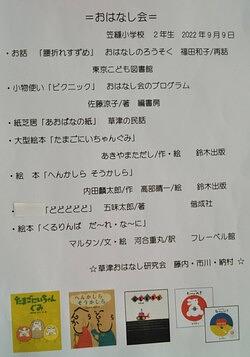 ＝おはなし会＝
笠縫小学校 ２年生 2022年9月9日
・お話 「腰折れすずめ」 おはなしのろうそく 福田和子/再話
東京こども図書館
・小物使い「ピクニック」 おはなし会のプログラム
佐藤涼子/著 編書房
・紙芝居「あおばなの紙」 草津の民話
・大型絵本「たまごにいちゃんぐみ」
あきやまただし/作・絵 鈴木出版
・絵 本「へんかしら そうかしら」
内田麟太郎/作 高部晴一/絵 鈴木出版
・「どどどどど」 五味太郎/著 偕成社
・絵本「くるりんぱ だ～れ・な～に」
マルタン/文・絵 河合重丸/訳 フレーベル館
☆草津おはなし研究会 藤内・市川・納村☆
たまごにいちゃん
ぐみ
へんかしら
そうかしら